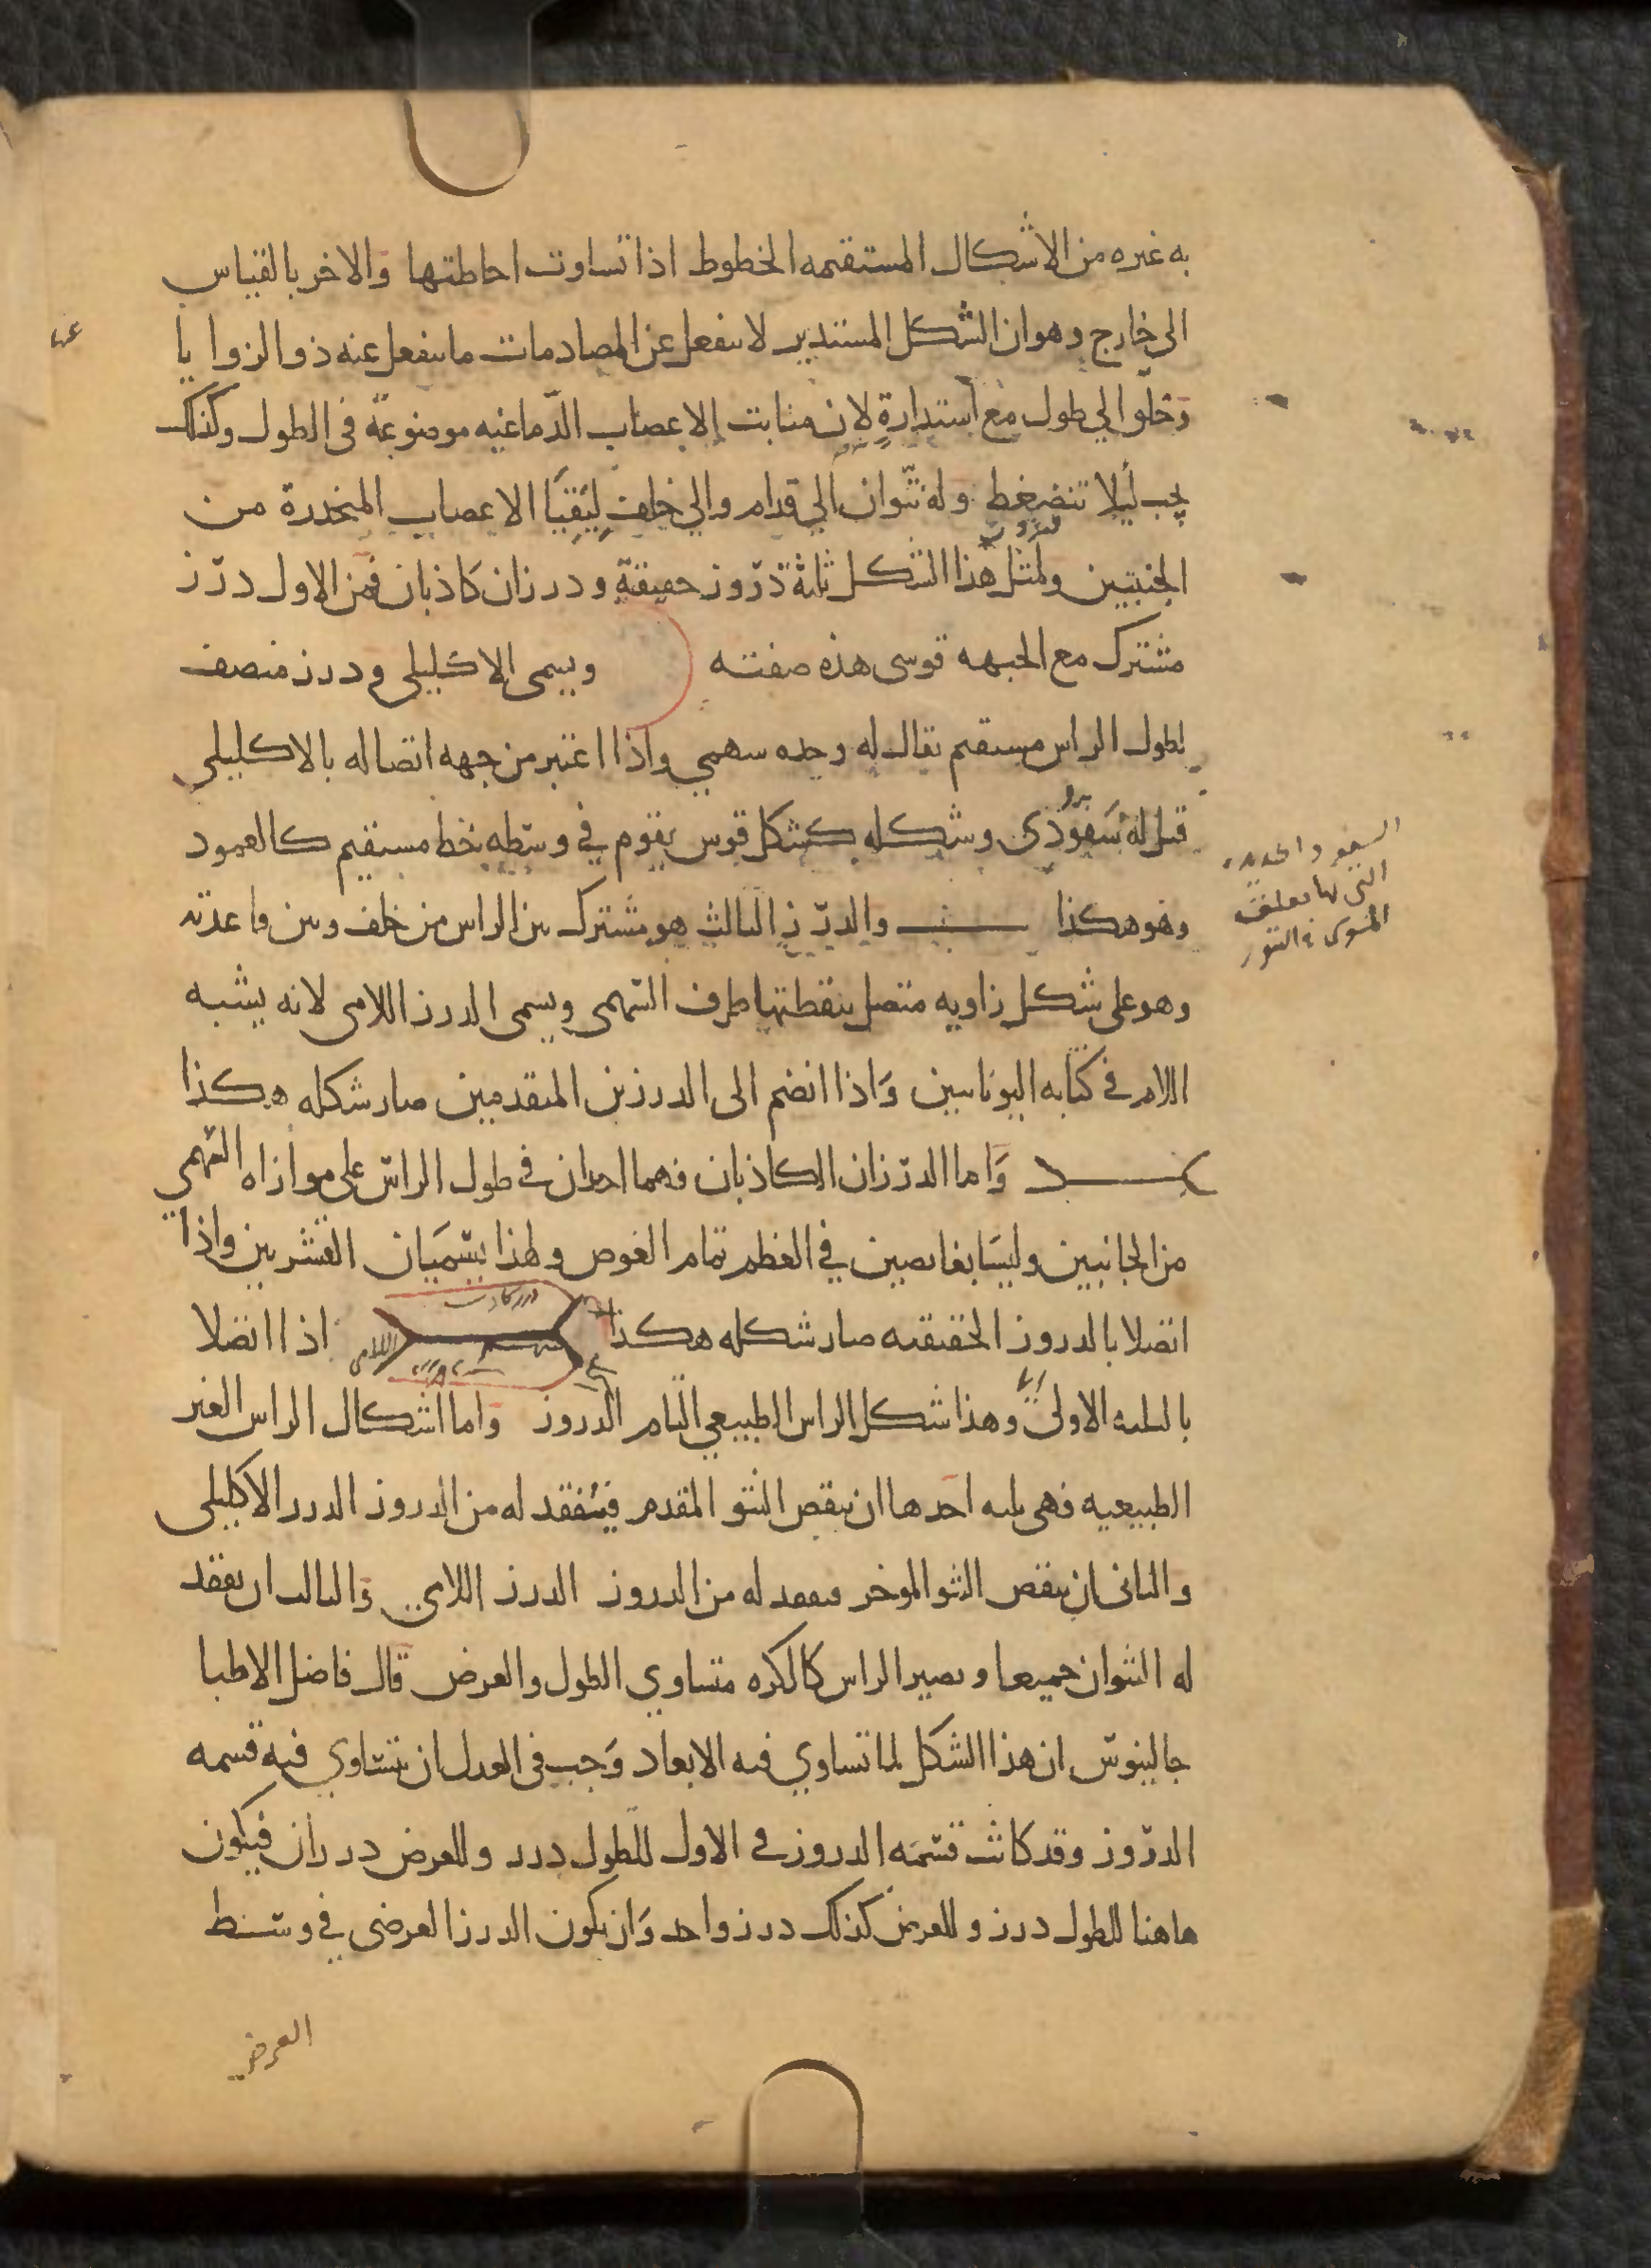 به غيره من الاشكال المستقيمه الخطوط اذا تساوت احاطتها والاخر بالقياس
الى خارج وهو ان الشكل المستدير لا ينفعل عن المصادمات ما ينفعل عنه ذو الزوايا
وخلق الي طول مع استدارة لان منابت الاعصاب الدماغيه موضوعة فى الطول وكذلك
يجب ليلا تنضغط وله نتوان الي قدام والي خلف ليقيا الاعصاب المنحدرة من
الجنبتين ولمثل هذا الشكل ثلثة دروز حقيقة ودرزان كاذبان فمن الاول درز
مشترك مع الجبهه قوسى هذه صفته ويسمى الاكليلى ودرز منصف
لطول الراس مستقيم يقال له وحده سهمي واذا اعتبر من جهه اتصاله بالاكليلي
قيل له سفودى وشكله كشكل قوس يقوم في وسطه خط مستقيم كالعمود
وهو هكذا والدرز الثالث هو مشترك بين الراس من خلف وبين قاعدته
وهو على شكل زاويه متصل بنقطتها طرف السهمى ويسمى الدرز اللامى لانه يشبه
اللام في كتابه اليونانيين واذا انضم الى الدرزين المتقدمين صار شكله هكذا
واما الدرزان الكاذبان فهما اخذان في طول الراس على موازاه السهمي
من الجانبين وليسا بغايصين في العظم تمام الغوص ولهذا يسميان القشريين واذا
اتصلا بالدروز الحقيقيه صار شكله هكذا اذا اتصلا
بالثلثه الاولى وهذا شكل الراس الطبيعي التام الدروز واما اشكال الراس الغير
الطبيعيه فهى ثلثه احدها ان ينقص النتو المقدم فيفقد له من الدروز الدرز الاكليلى
والثانى ان ينقص النتو الموخر فيفقد له من الدروز الدرز اللامي والثالث ان يفقد
له النتوان جميعا ويصير الراس كالكره متساوي الطول والعرض قال فاضل الاطبا
جالينوس ان هذا الشكل لما تساوي فيه الابعاد وجب فى العدل ان يتساوي فيه قسمه
الدروز وقد كانت قسمه الدروز في الاول للطول درز وللعرض درزان فيكون
هاهنا للطول درز وللعرض كذلك درز واحد وان يكون الدرز العرضى في وسط
العرض
السفود الحديده
التى بها يعلق
المشوى فى التنور
درز كاذب
اللامى